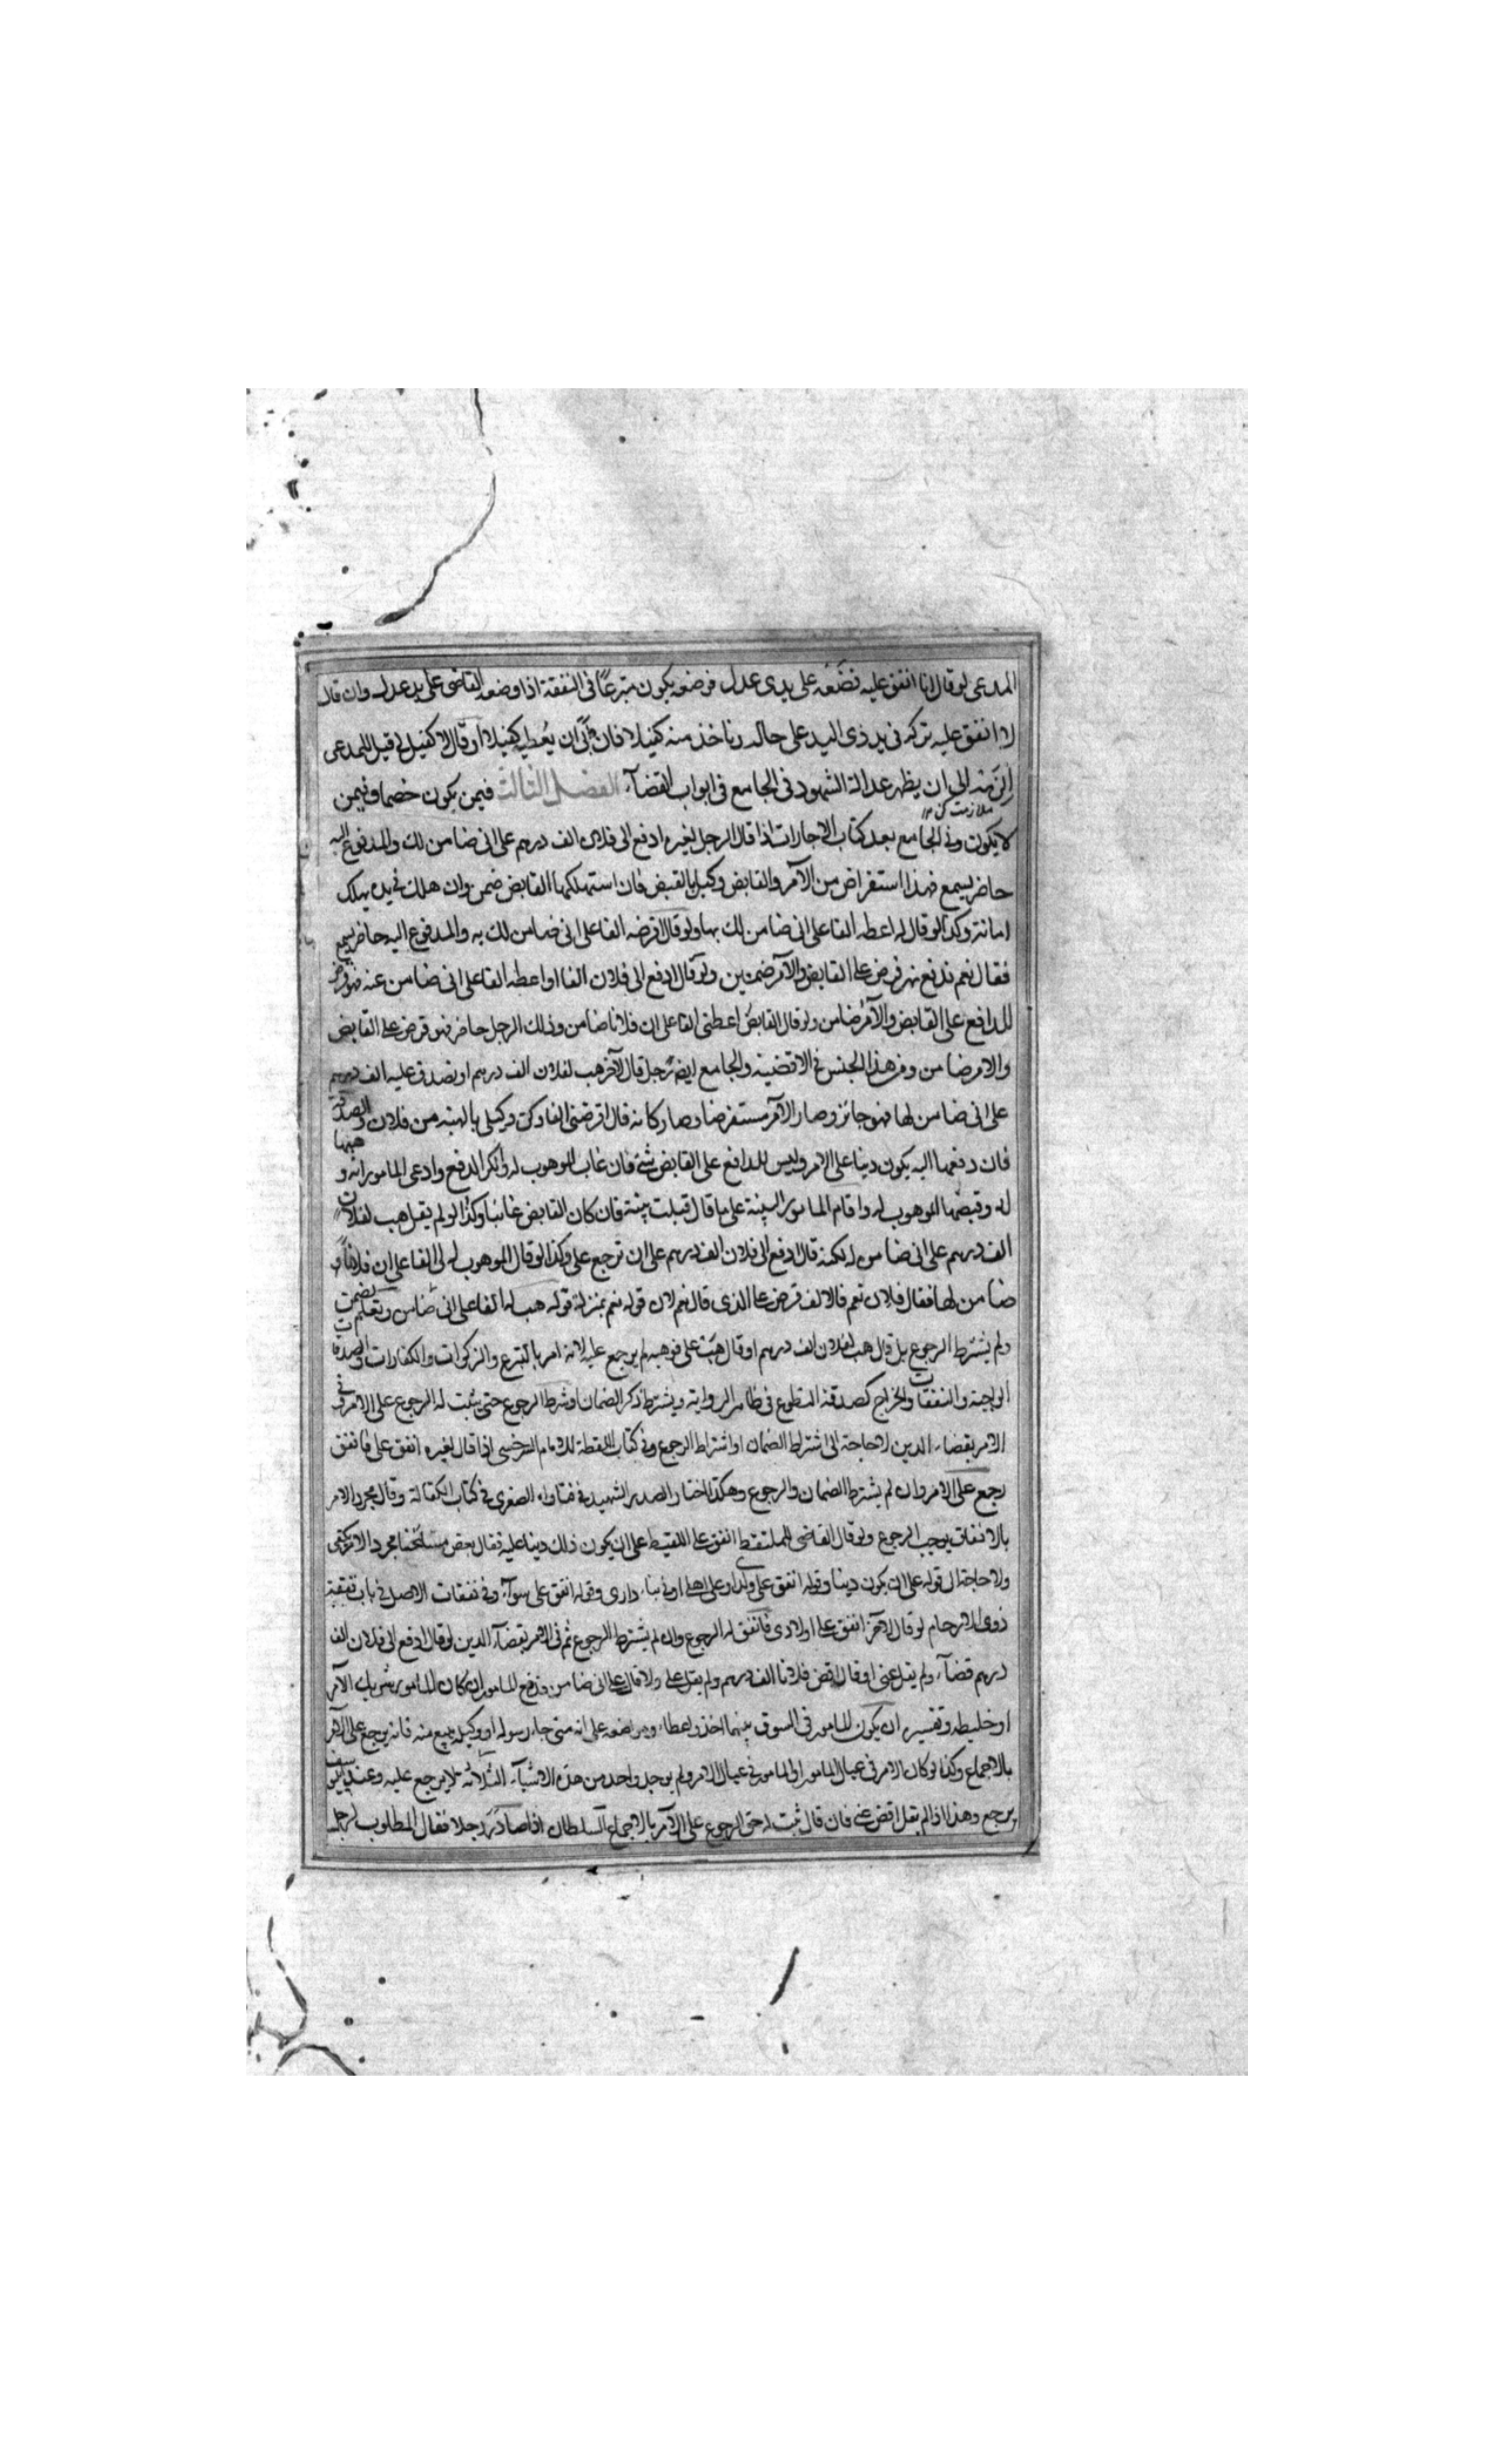 المدعى لو قال انا انفق عليه نضعه على يدى عدل فوضعه يكون متبرعا فى النفقة اذا وضعه القاضى على يد عدل وان قال
لا انفق عليه تركه فى يد ذى اليد على حاله وناخذ منه كفيلا فان ابى ان يعطى كفيلا او قال لا كفيل لى قيل للمدعى
الزمه الى ان يظهر عدالة الشهود فى الجامع فى ابواب القضآء الفصل الثالث فيمن يكون خصما وفيمن
ملازمت كن ١٢
لا يكون وفى الجامع بعد كتاب الاجارات اذا قال الرجل لغيره ادفع الى فلان الف درهم على انى ضامن لك والمدفوع اليه
حاضر يسمع فهذا استقراض من الآمر والقابض وكيل بالقبض فان استهلكها القابض ضمن وان هلك فى يده يهلك
امانة وكذا لو قال له اعطه الفا على انى ضامن لك بها ولو قال اقرضه الفا على انى ضامن لك به والمدفوع اليه حاضر يسمع
فقال نعم فدفع فهو قرض على القابض والآمر ضمين ولو قال ادفع الى فلان الفا او اعطه الفا على انى ضامن عنه فهو قرض
للدافع على القابض والآمر ضامن ولو قال القابض اعطنى الفا على ان فلانا ضامن وذلك الرجل حاضر فهو قرض على القابض
والامر ضامن ومن هذا الجنس فى الاقضية والجامع ايضا رجل قال لآخر هب لفلان الف درهم او تصدق عليه الف درهم
على انى ضامن لها فهو جائز وصار الآمر مستقرضا وصار كانه قال اقرضنى الفا وكن وكيلى بالهبة من فلان والصدقة
فان دفعها اليه يكون دينا على الامر وليس للدافع على القابض شئ فان غاب الموهوب له وانكر الدفع وادعى المامور انه وهبها
له وقبضها الموهوب له واقام المامور البينة على ما قال قبلت بينته فان كان القابض غائبا وكذا لو لم يقل هب لفلان
الف درهم على انى ضامن لكنه قال ادفع الى فلان الف درهم على ان ترجع على وكذا لو قال الموهوب له لى الفا على ان فلانا
ضامن لها فقال فلان نعم فالالف قرض على الذى قال نعم لان قوله نعم بمنزلة قوله هب له الفا على انى ضامن
ولم يشترط الرجوع بل قال هب لفلان الف درهم او قال هبه على فوهبه لم يرجع عليه لانه امر بالتبرع والزكوات والكفارات والصدقات
الواجبة والنفقات والخراج كصدقة التطوع فى ظاهر الرواية ويشترط ذكر الضمان او شرط الرجوع حتى يثبت له الرجوع على الامر وفى
الامر بقضاء الدين لا حاجة الى اشتراط الضمان او اشتراط الرجوع وفى كتاب اللقطة للامام السرخسى اذا قال لغيره انفق على فانفق
رجع على الامر وان لم يشترط الضمان والرجوع وهكذا اختار الصدر الشهيد فى فتاواه الصغرى فى كتاب الكفالة وقال مجرد الامر
بالانفاق يوجب الرجوع ولو قال القاضى للملتقط انفق على اللقيط على ان يكون ذلك دينا عليه فقال بعض مشائخنا مجرد الامر يكفى
ولا حاجة الى قوله على ان يكون دينا وقوله انفق على ولدى او على اهلى او فى بناء دارى وقوله انفق على سوآء وفى نفقات الاصل فى باب نفقة
ذوى الارحام لو قال لآخر انفق على اولادى فانفق له الرجوع وان لم يشترط الرجوع ثم فى الامر بقضآء الدين لو قال ادفع الى فلان الف
درهم قضآء ولم يقل عنى او قال اقض فلانا الف درهم ولم يقل على ولا قال على انى ضامن فدفع المامور ان كان المامور شريك الآمر
او خليطه وتفسيره ان يكون المامور فى السوق بينهما اخذ واعطاء ومواضعه على انه متى جاء رسوله او وكيله يبيع منه فانه يرجع على الآمر
بالاجماع وكذا لو كان الامر فى عيال المامور او المامور فى عيال الامر ولم يوجد واحد من هذه الاشيآء الثلاثة لا يرجع عليه وعند ابى يوسف
يرجع وهذا اذا لم يقل اقض عنى فان قال ثبت له حق الرجوع على الآمر بالاجماع السلطان اذا صادر رجلا فقال المطلوب لرجل